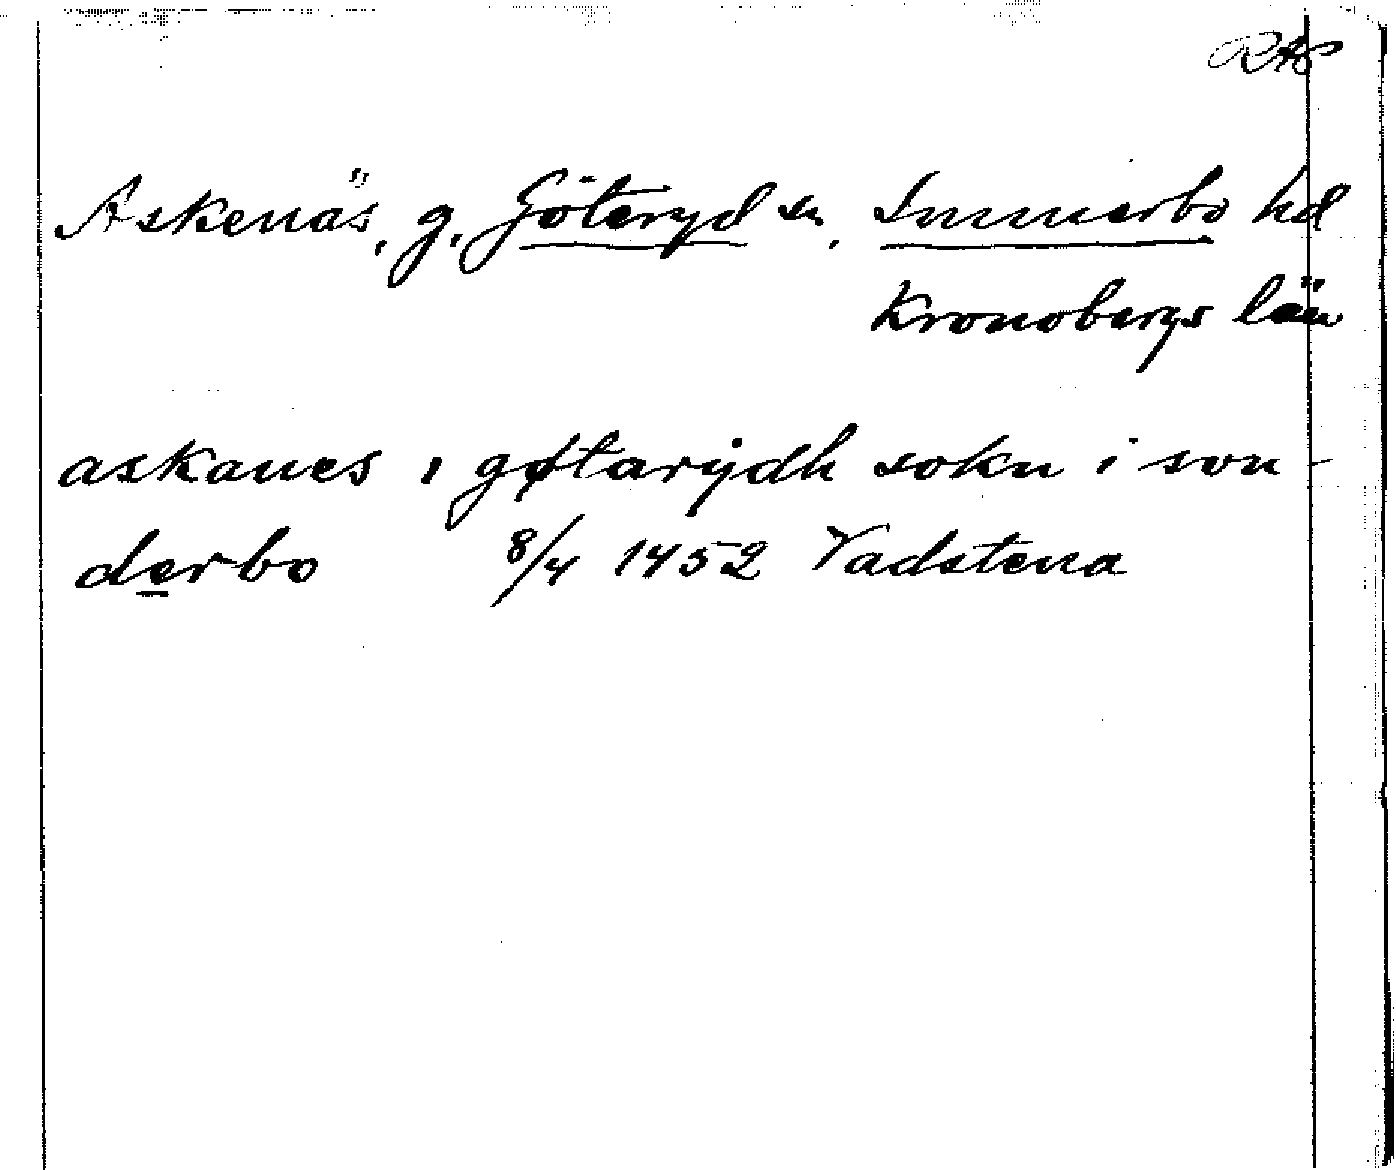 RAP
Askenäs, g, Göteryd sn, Sunnerbo hd
Kronobergs län
askanes i gøtarydh sokn i son-
derbo 8/4 1452 Vadstena